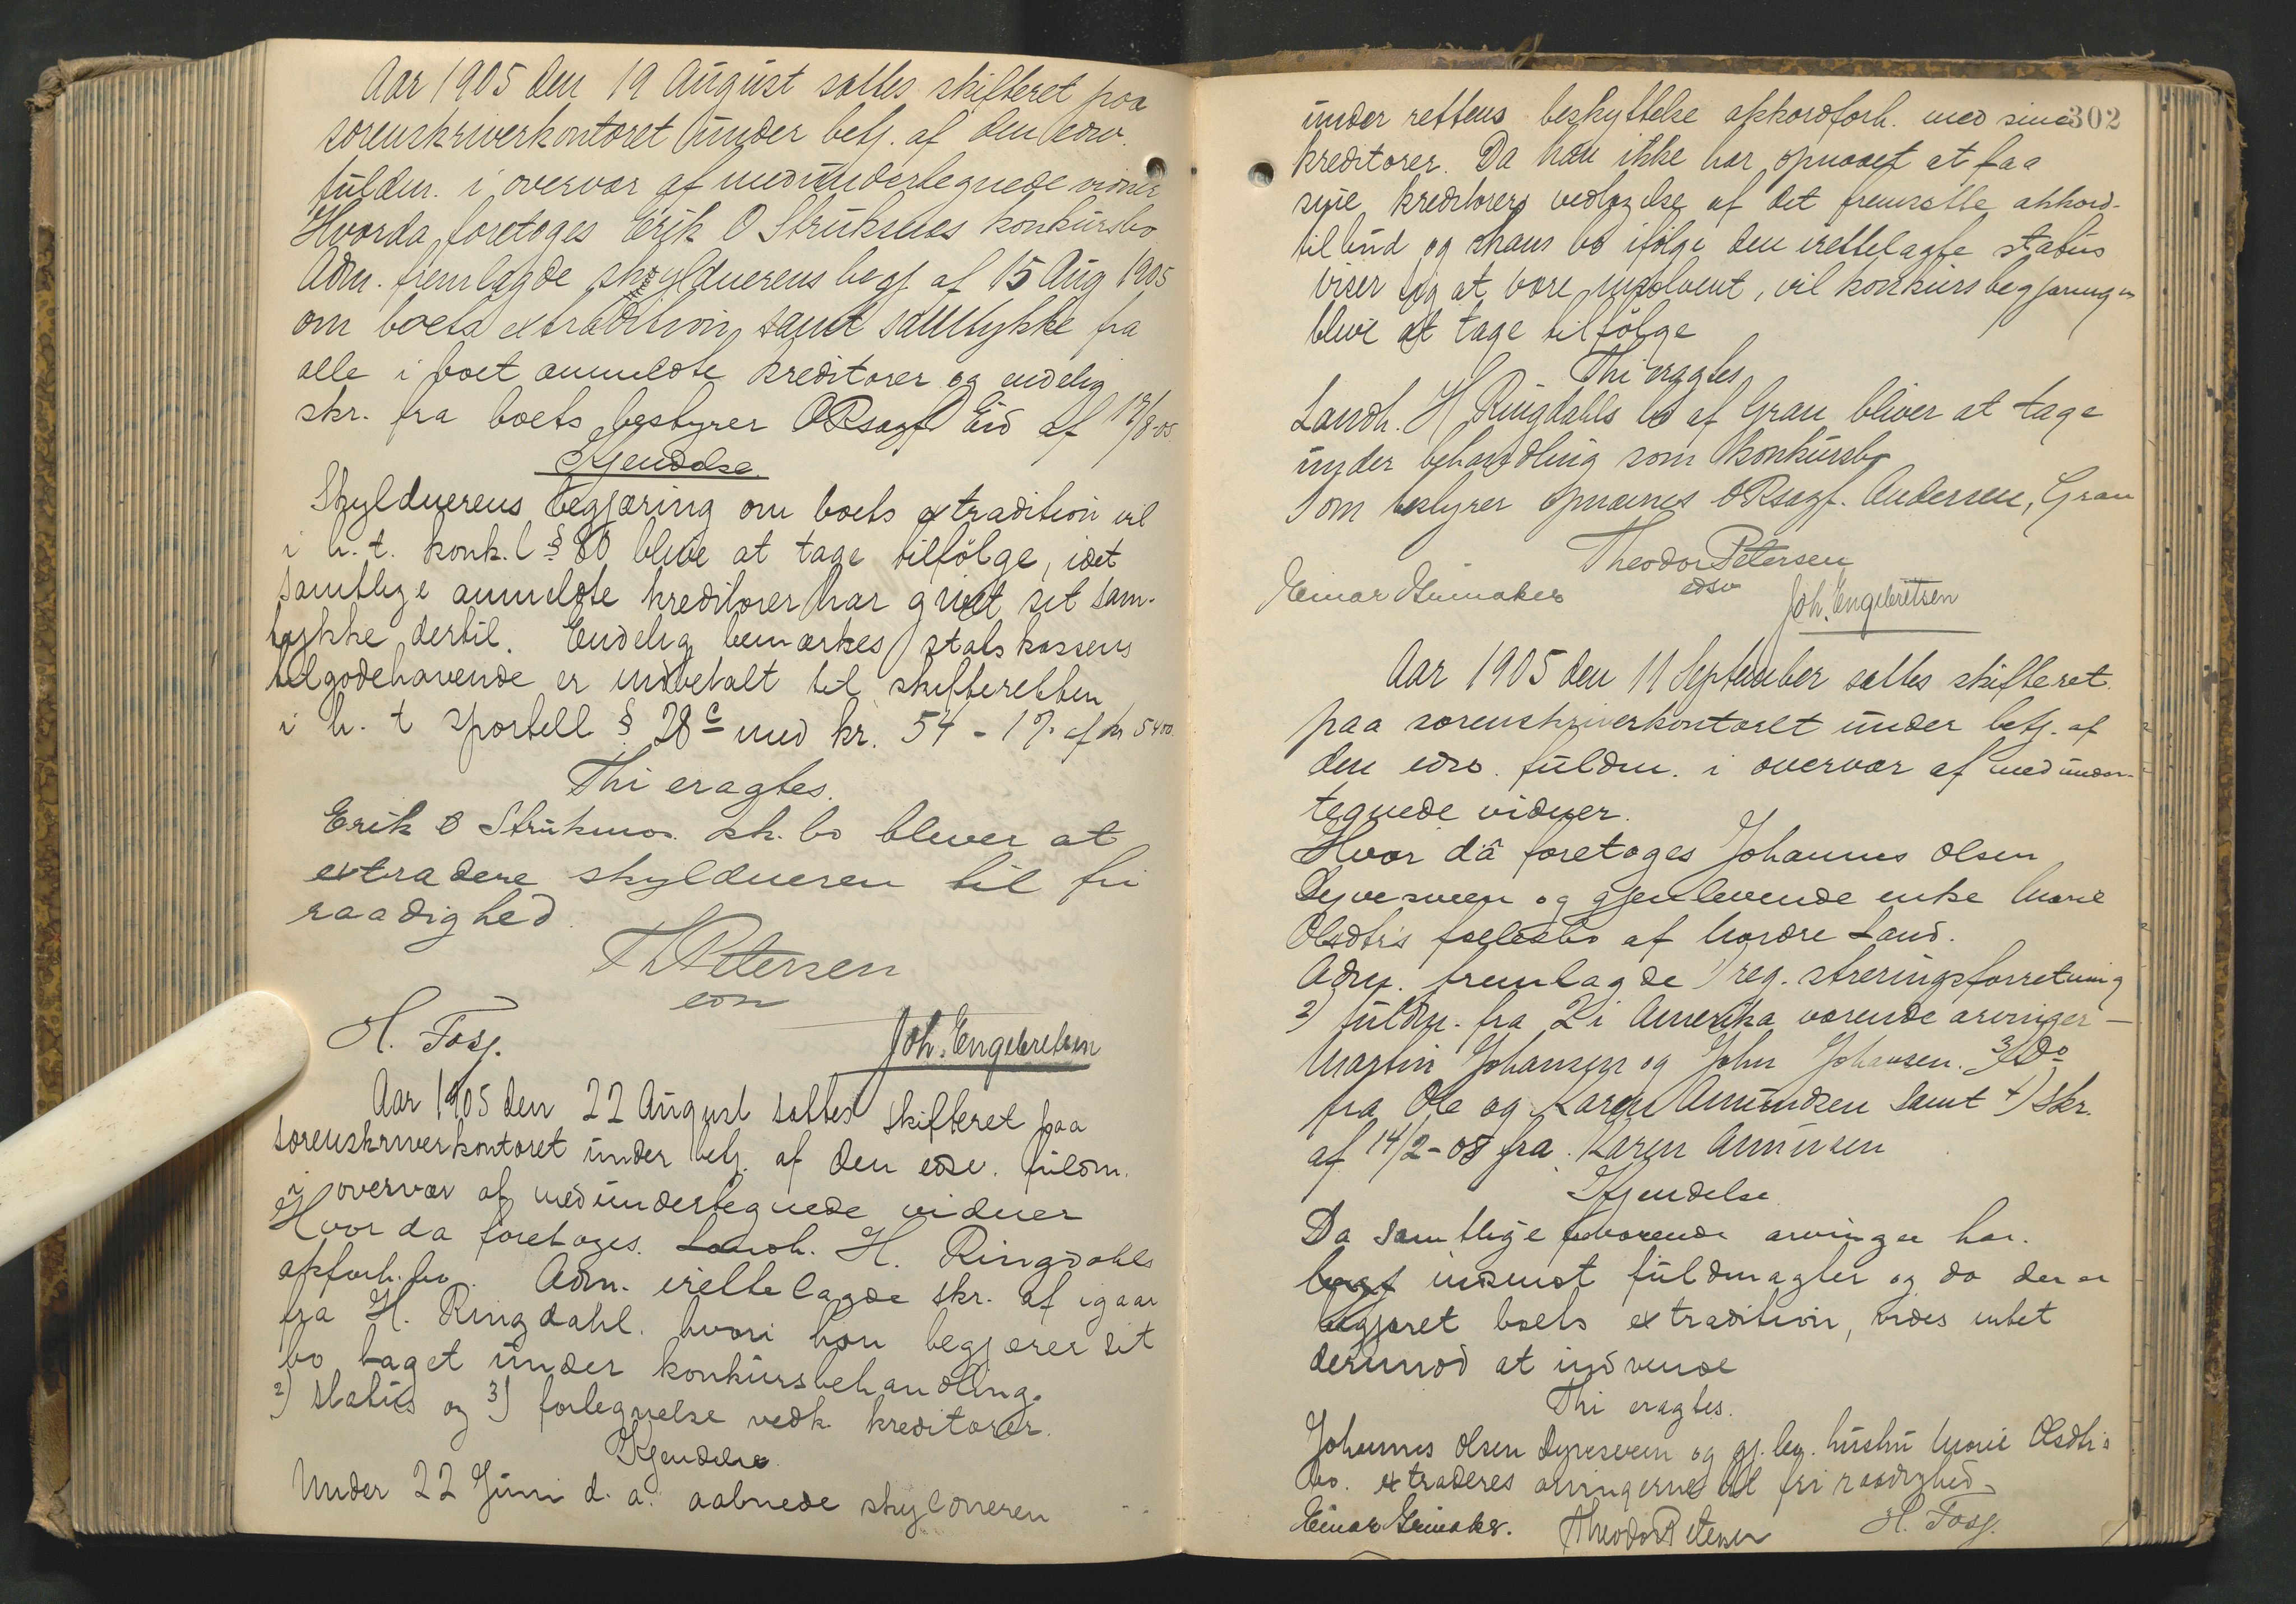 Aar 1905 den 19 August sattes skifteret paa
sorenskriverkontoret under betj. af den edsv.
fuldm. i overvær af medundertegnede vidner
Hvorda foretoges Erik O Struksnæs konkursbo
Adm. fremlagde skyldnerens begj af 15 Aug 1905
om boets extradition, samt samtykke fra
alle i boet anmeldte kreditorer og endelig
skr. fra boets bestyrer ORsagf Eid af 17/8-05.
Kjendelse
Skyldnerens begjæring om boets extradition vil
i h. t. konk.l § 80 blive at tage tilfølge, idet
samtlige anmeldte kreditorer har givet sit sam-
tykke dertil. Endelig bemærkes statskassens
tilgodehavende er indbetalt til skifteretten
i h. t sportell § 28 c med kr. 54 - 1% af kr 5400.
Thi eragtes.
Erik O Struksnæs kk. bo bliver at
extradere skyldneren til fri
raadighed.
ThPetersen
edsv
H. Fosj.
Joh. Engebretsen
Aar 1905 den 22 August sattes skifteret paa
sorenskriverkontoret under betj. af den edsv. fuldm.
i overvær af medundertegnede vidner
Hvor da foretoges. Landh. H. Ringdahls
akforh.bo. Adm. irettelagde skr. af igaar
fra H. Ringdahl. hvori han begjærer sit
bo taget under konkursbehandling.
2) status og 3) fortegnelse vedk kreditorer.
Kjendelse
Under 22 Juni d. a. aabnede skyldneren
302
under rettens beskyttelse akkordforh. med sine
kreditorer. Da han ikke har opnaaet at faa
sine kreditorers vedtagelse af det fremsatte akkord-
tilbud og hans bo ifølge den irettelagte status
viser sig at være insolvent, vil konkursbegjæringen
blive at tage tilfølge
Thi eragtes
Landh. H Ringdahls bo af Gran bliver at tage
under behandling som konkursbo
Som bestyrer opnævnes ORsagf. Andersen, Gran
Theodor Petersen
edsv
Einar Grinaker
Joh. Engebretsen
Aar 1905 den 11 September sattes skifteret
paa sorenskriverkontoret under betj. af
den edsv. fuldm. i overvær af medunder-
tegnede vidner.
Hvor da foretoges Johannes Olsen
Dyvesveen og gjenlevende enke Marie
Olsdtr's fællesbo af Nordre Land.
Adm. fremlagde 1) reg.streringsforretning
2) fuldm. fra 2 i Amerika værende arvinger -
Martin Johansen og John Johansen. 3) Do
fra Ole og Karen Amundsen samt 4) skr.
af 14/2-05 fra Karen Amunsen
Kjendelse
Da samtlige arvinger har.
indsendt fuldmagter og da der er
begjæret boets extradition, vides intet
derimod at indvende
Thi eragtes.
Johannes Olsen Dyvesveen og gj. lev. hustru Marie Olsdtr's
bo. extraderes arvingerne til fri raadighed.
Einar Grinaker. Theodor Petersen H. Fosj.